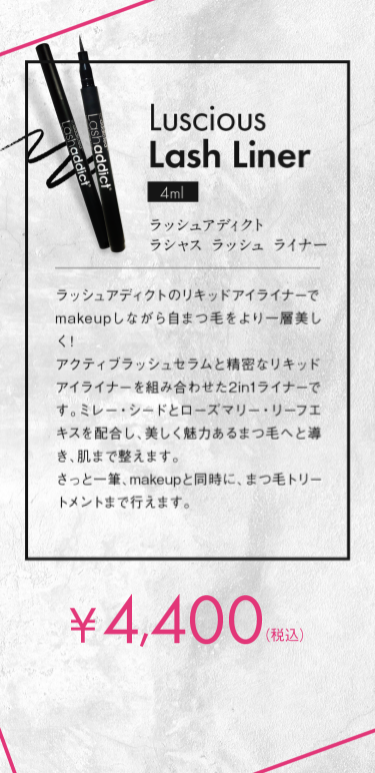 Lashaddict
Lashaddict
Luscious
Lash Liner
4ml
ラッシュアディクト
ラシャス ラッシュ ライナー
ラッシュアディクトのリキッドアイライナーで
makeupしながら自まつ毛をより一層美し
く!
アクティブラッシュセラムと精密なリキッド
アイライナーを組み合わせた2in1ライナーで
す。ミレー・シードとローズマリー・リーフエ
キスを配合し、美しく魅力あるまつ毛へと導
き、肌まで整えます。
さっと一筆、makeupと同時に、まつ毛トリー
トメントまで行えます。
¥4,400(税込)